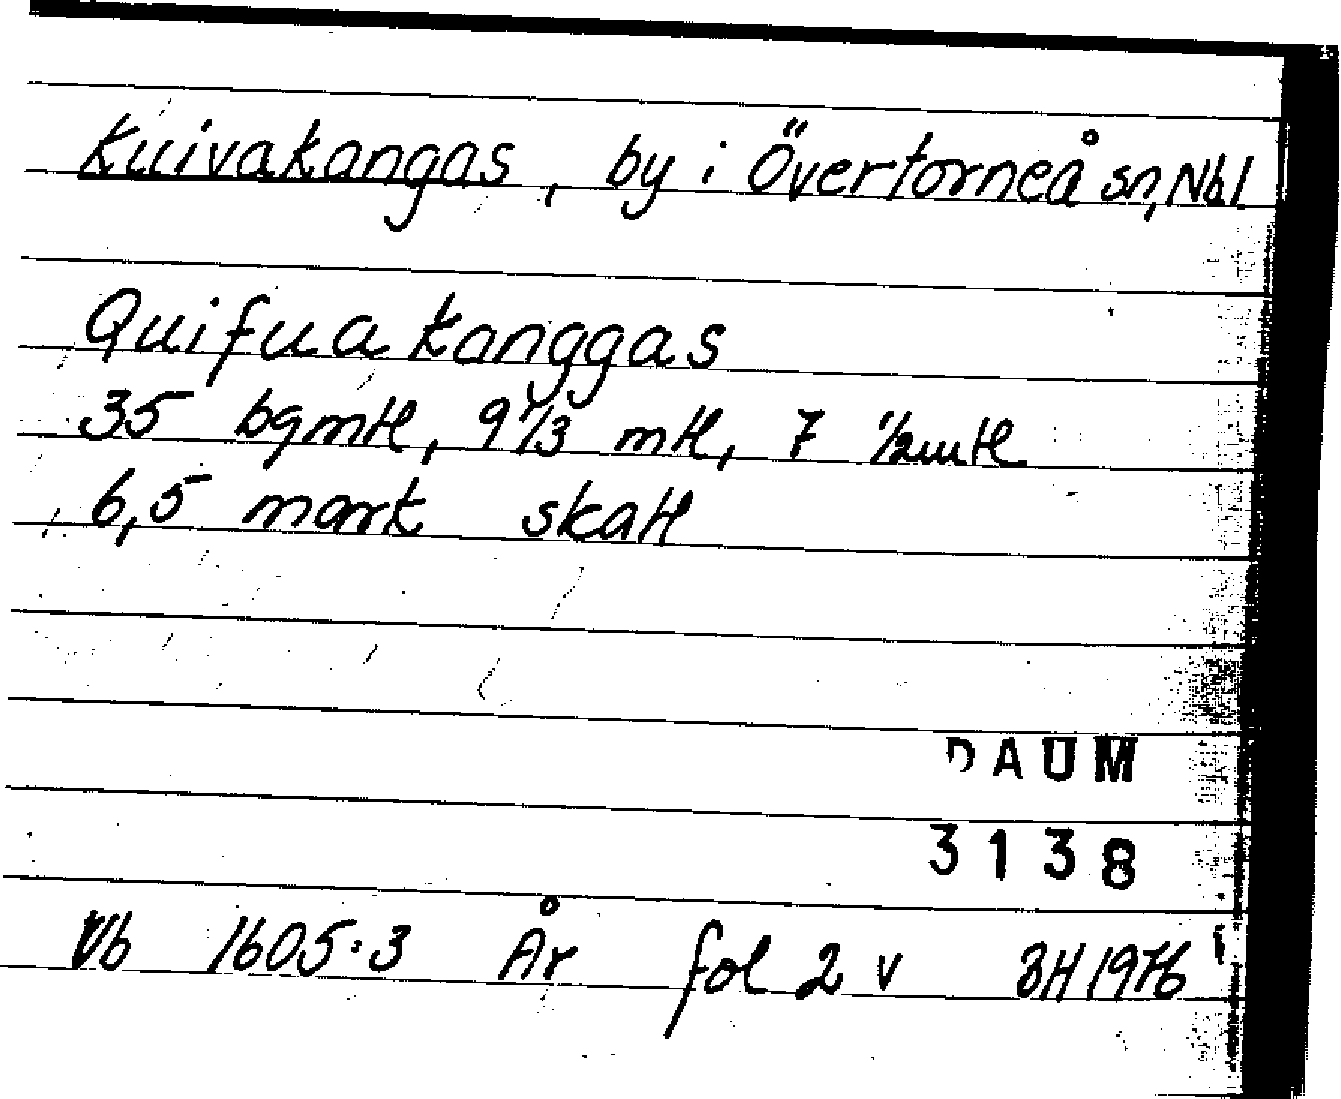 Kuivakangas, by i Övertorneå sn, Nbl
Quifua kanggas
35 bgmtl, 9 1/3 mtl, 7 1/2 mtl
6,5 mark skatt
DAUM
3138
Vb 1605:3 År fol 2 v BH 1976